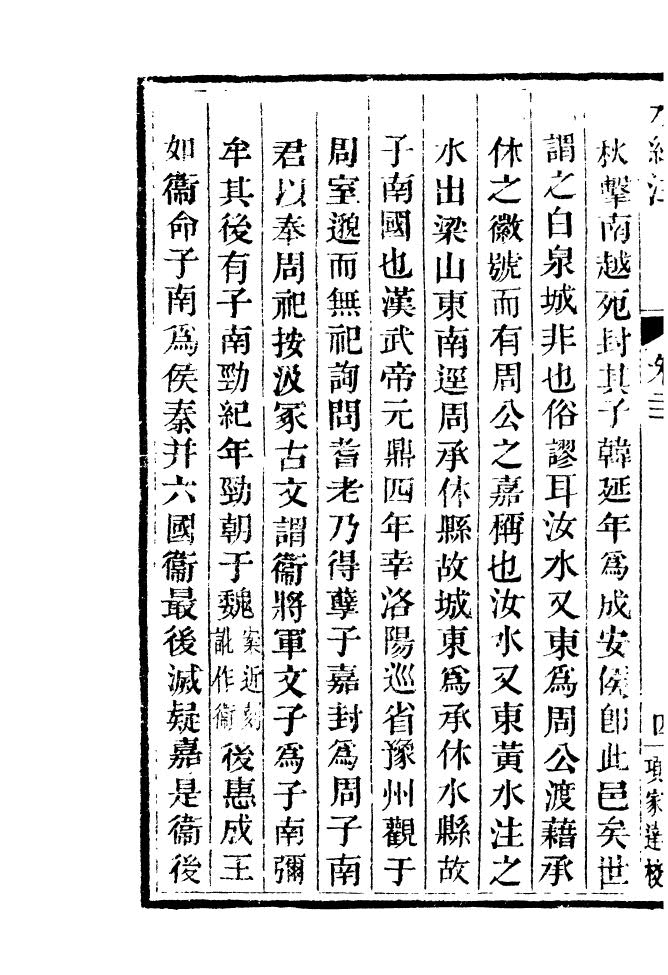 水經注 卷二十一 四 項家達校
秋擊南越死封其子韓延年爲成安侯卽此邑矣世
謂之白泉城非也俗謬耳汝水又東爲周公渡藉承
休之徽號而有周公之嘉稱也汝水又東黃水注之
水出梁山東南逕周承休縣故城東爲承休水縣故
子南國也漢武帝元鼎四年幸洛陽巡省豫州觀于
周室邈而無祀詢問耆老乃得孽子嘉封爲周子南
君以奉周祀按汲冢古文謂衞將軍文子爲子南彌
牟其後有子南勁紀年勁朝于魏案近刻訛作衞後惠成王
如衞命子南爲侯秦并六國衞最後滅疑嘉是衞後